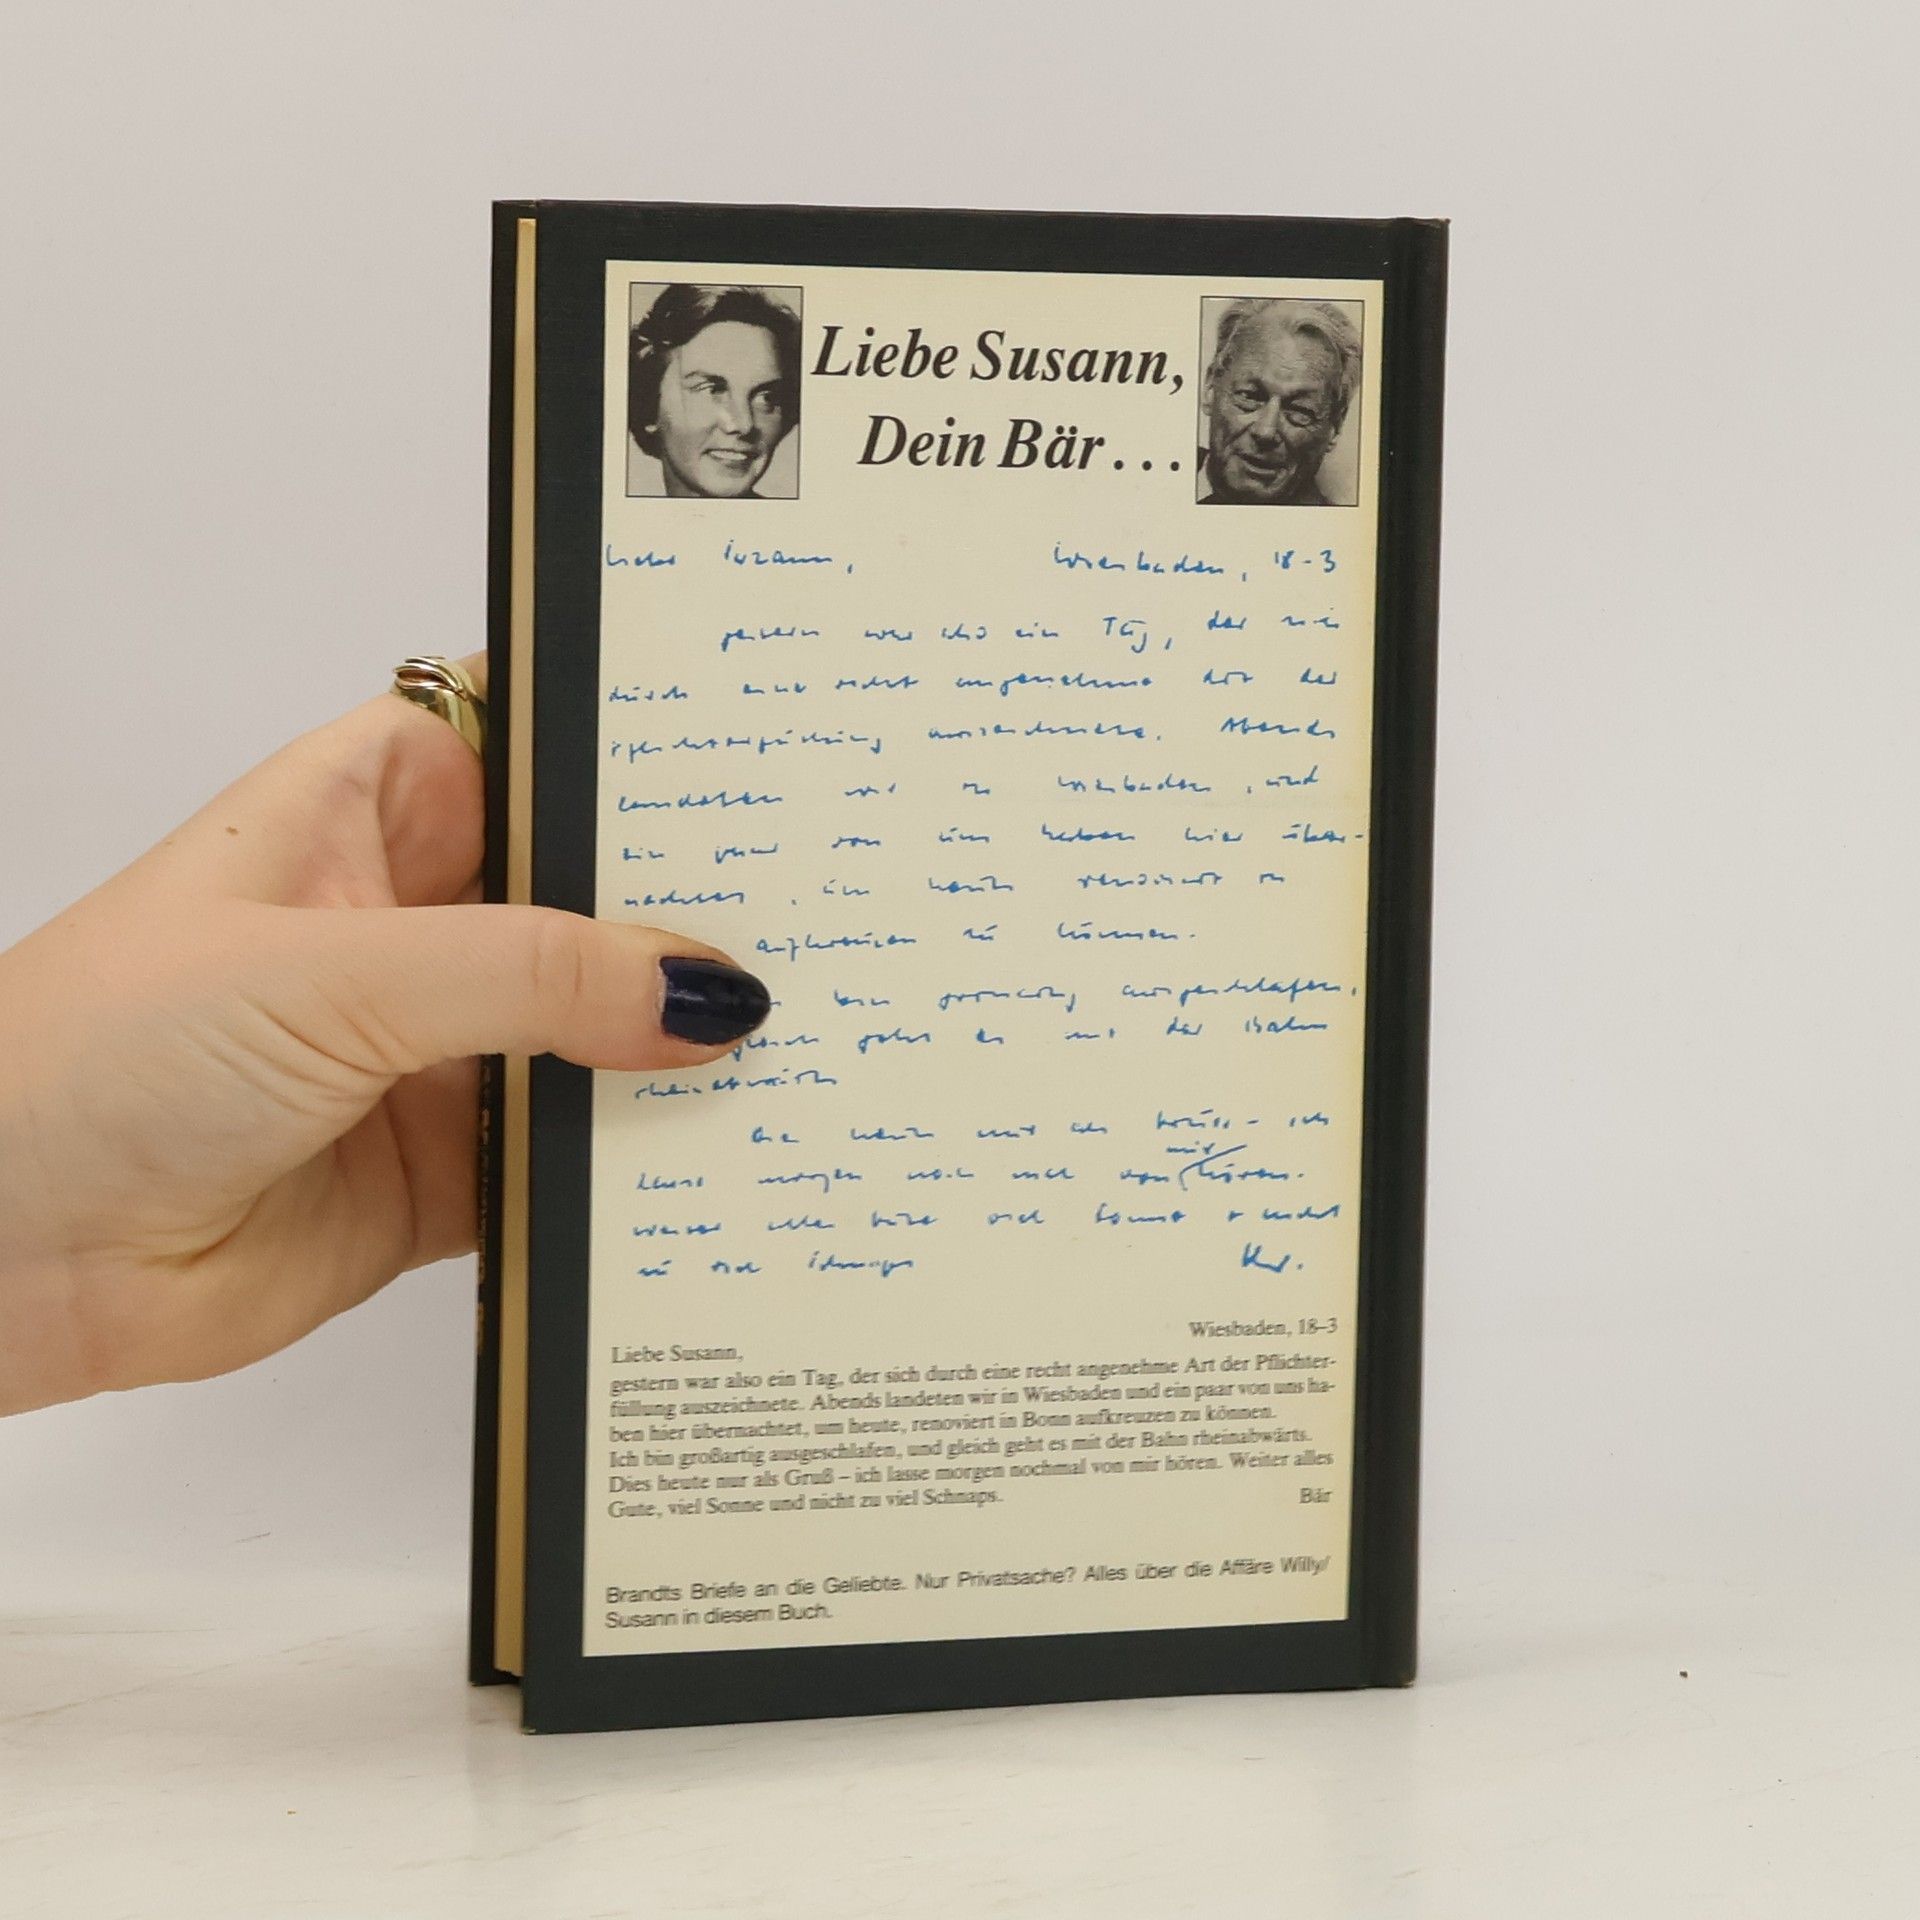 Liebe Susann,
Dein Bär...
Liebe Susann, Wiesbaden, 18-3
gestern war also ein Tag, der sich
durch eine recht angenehme Art der
Pflichterfüllung auszeichnete. Abends
landeten wir in Wiesbaden, und
ein paar von uns haben hier über-
nachtet, um heute renoviert in
aufkreuzen zu können.
bin grossartig ausgeschlafen,
gleich geht es mit der Bahn
rheinabwärts
Dies heute nur als Gruss - ich
lasse morgen noch mal von mir hören.
Weiter alles Gute viel Sonne + nicht
zu viel Schnaps
Wiesbaden, 18–3
Liebe Susann,
gestern war also ein Tag, der sich durch eine recht angenehme Art der Pflichter-
füllung auszeichnete. Abends landeten wir in Wiesbaden und ein paar von uns ha-
ben hier übernachtet, um heute, renoviert in Bonn aufkreuzen zu können.
Ich bin großartig ausgeschlafen, und gleich geht es mit der Bahn rheinabwärts.
Dies heute nur als Gruß – ich lasse morgen nochmal von mir hören. Weiter alles
Gute, viel Sonne und nicht zu viel Schnaps. Bär
Brandts Briefe an die Geliebte. Nur Privatsache? Alles über die Affäre Willy/
Susann in diesem Buch.